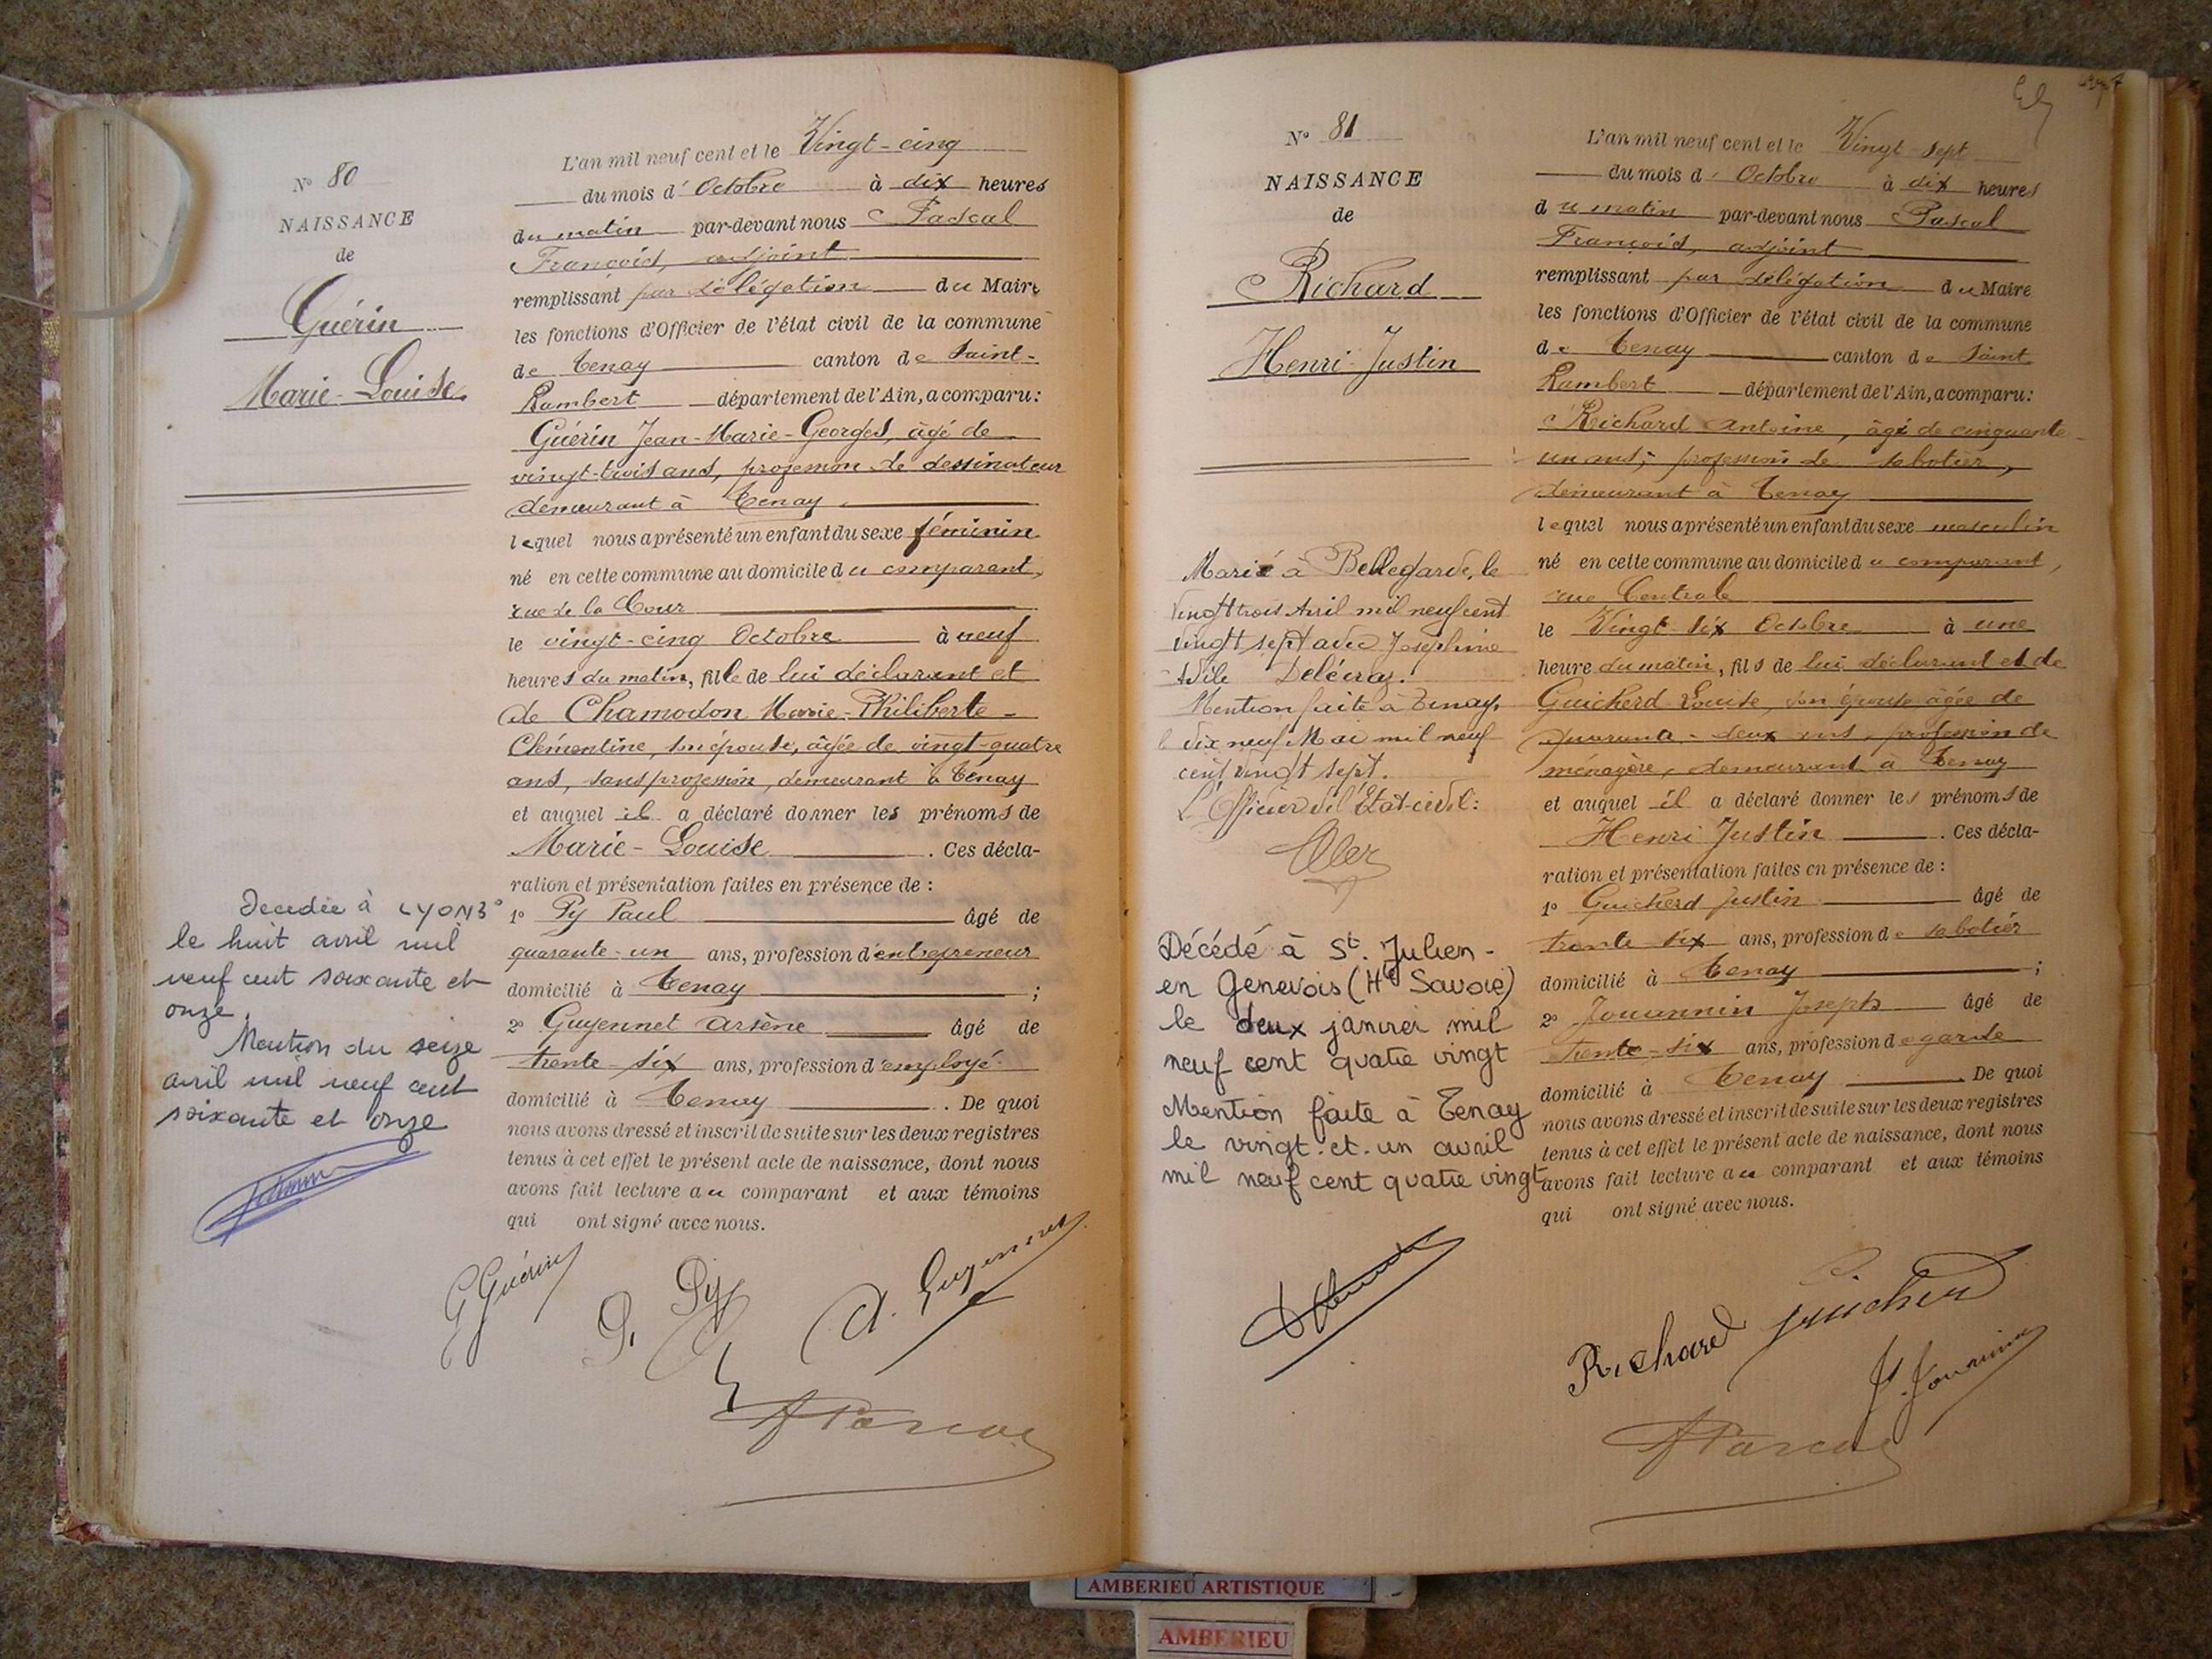 Nº 80
NAISSANCE
de
Guérin
Marie-Louise
L'an mil neuf cent et le Vingt-cinq
du mois d' Octobre à dix heures
du matin par-devant nous Pascal
François, adjoint
remplissant par délégation du Maire
les fonctions d'Officier de l'état civil de la commune
de Tenay canton de Saint-
Rambert département de l'Ain, a comparu:
Guérin Jean-Marie-Georges, âgé de
vingt-trois ans, profession de dessinateur
demeurant à Tenay
lequel nous a présenté un enfant du sexe féminin
né en cette commune au domicile du comparant,
rue de la Cour
le vingt-cinq Octobre à neuf
heures du matin, fille de lui déclarant et
de Chamodon Marie-Philiberte-
Clémentine, son épouse, âgée de vingt-quatre
ans, sans profession, demeurant à Tenay
et auquel il a déclaré donner les prénoms de
Marie-Louise . Ces décla-
ration et présentation faites en présence de :
1º Py Paul âgé de
quarante-un ans, profession d'entrepreneur
domicilié à Tenay ;
2º Guyennet Arsène âgé de
trente-six ans, profession d'employé
domicilié à Tenay . De quoi
nous avons dressé et inscrit de suite sur les deux registres
tenus à cet effet le présent acte de naissance, dont nous
avons fait lecture au comparant et aux témoins
qui ont signé avec nous.
Decedée à LYON 3º
le huit avril mil
neuf cent soixante et
onze.
Mention du seize
avril mil neuf cent
soixante et onze
G Guérin
P. Py
A. Guyennet
F Pascal
Nº 81
NAISSANCE
de
Richard
Henri-Justin
L'an mil neuf cent et le Vingt-sept
du mois d' Octobre à dix heures
du matin par-devant nous Pascal
François, adjoint
remplissant par délégation du Maire
les fonctions d'Officier de l'état civil de la commune
de Tenay canton de Saint
Rambert département de l'Ain, a comparu:
Richard Antoine, âgé de cinquante-
un ans, profession de sabotier,
demeurant à Tenay
lequel nous a présenté un enfant du sexe masculin
né en cette commune au domicile du comparant,
rue Centrale
le Vingt-six Octobre à une
heure du matin, fils de lui déclarant et de
Guicherd Louise, son épouse âgée de
quarante-deux ans, profession de
ménagère, demeurant à Tenay
et auquel il a déclaré donner les prénoms de
Henri Justin . Ces décla-
ration et présentation faites en présence de :
1º Guicherd Justin âgé de
trente-six ans, profession de sabotier
domicilié à Tenay ;
2º Jouannin Joseph âgé de
trente-six ans, profession de garde
domicilié à Tenay . De quoi
nous avons dressé et inscrit de suite sur les deux registres
tenus à cet effet le présent acte de naissance, dont nous
avons fait lecture au comparant et aux témoins
qui ont signé avec nous.
Marié à Bellegarde, le
vingt trois Avril mil neuf cent
vingt sept avec Joséphine
Adèle
Mention faite à Tenay,
le dix neuf Mai mil neuf
cent vingt sept.
L'Officier de l'Etat-civil:
Décédé à St. Julien-
en Genevois (Hte Savoie)
le deux janvier mil
neuf cent quatre vingt
Mention faite à Tenay
le vingt.et.un avril
mil neuf cent quatre vingt
Richard
Guicherd
J. Jouannin
F Pascal
AMBERIEU ARTISTIQUE
AMBERIEU